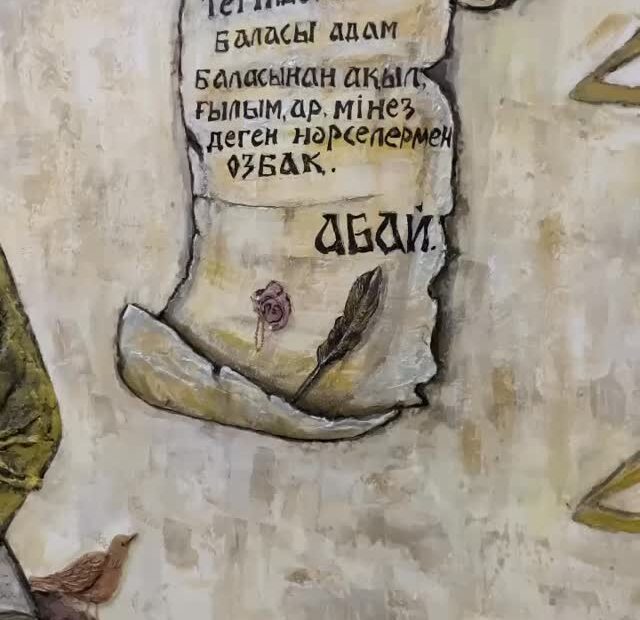 баласы адам
баласынан ақыл,
ғылым, ар, мінез
деген нәрселермен
озбақ.
Абай.